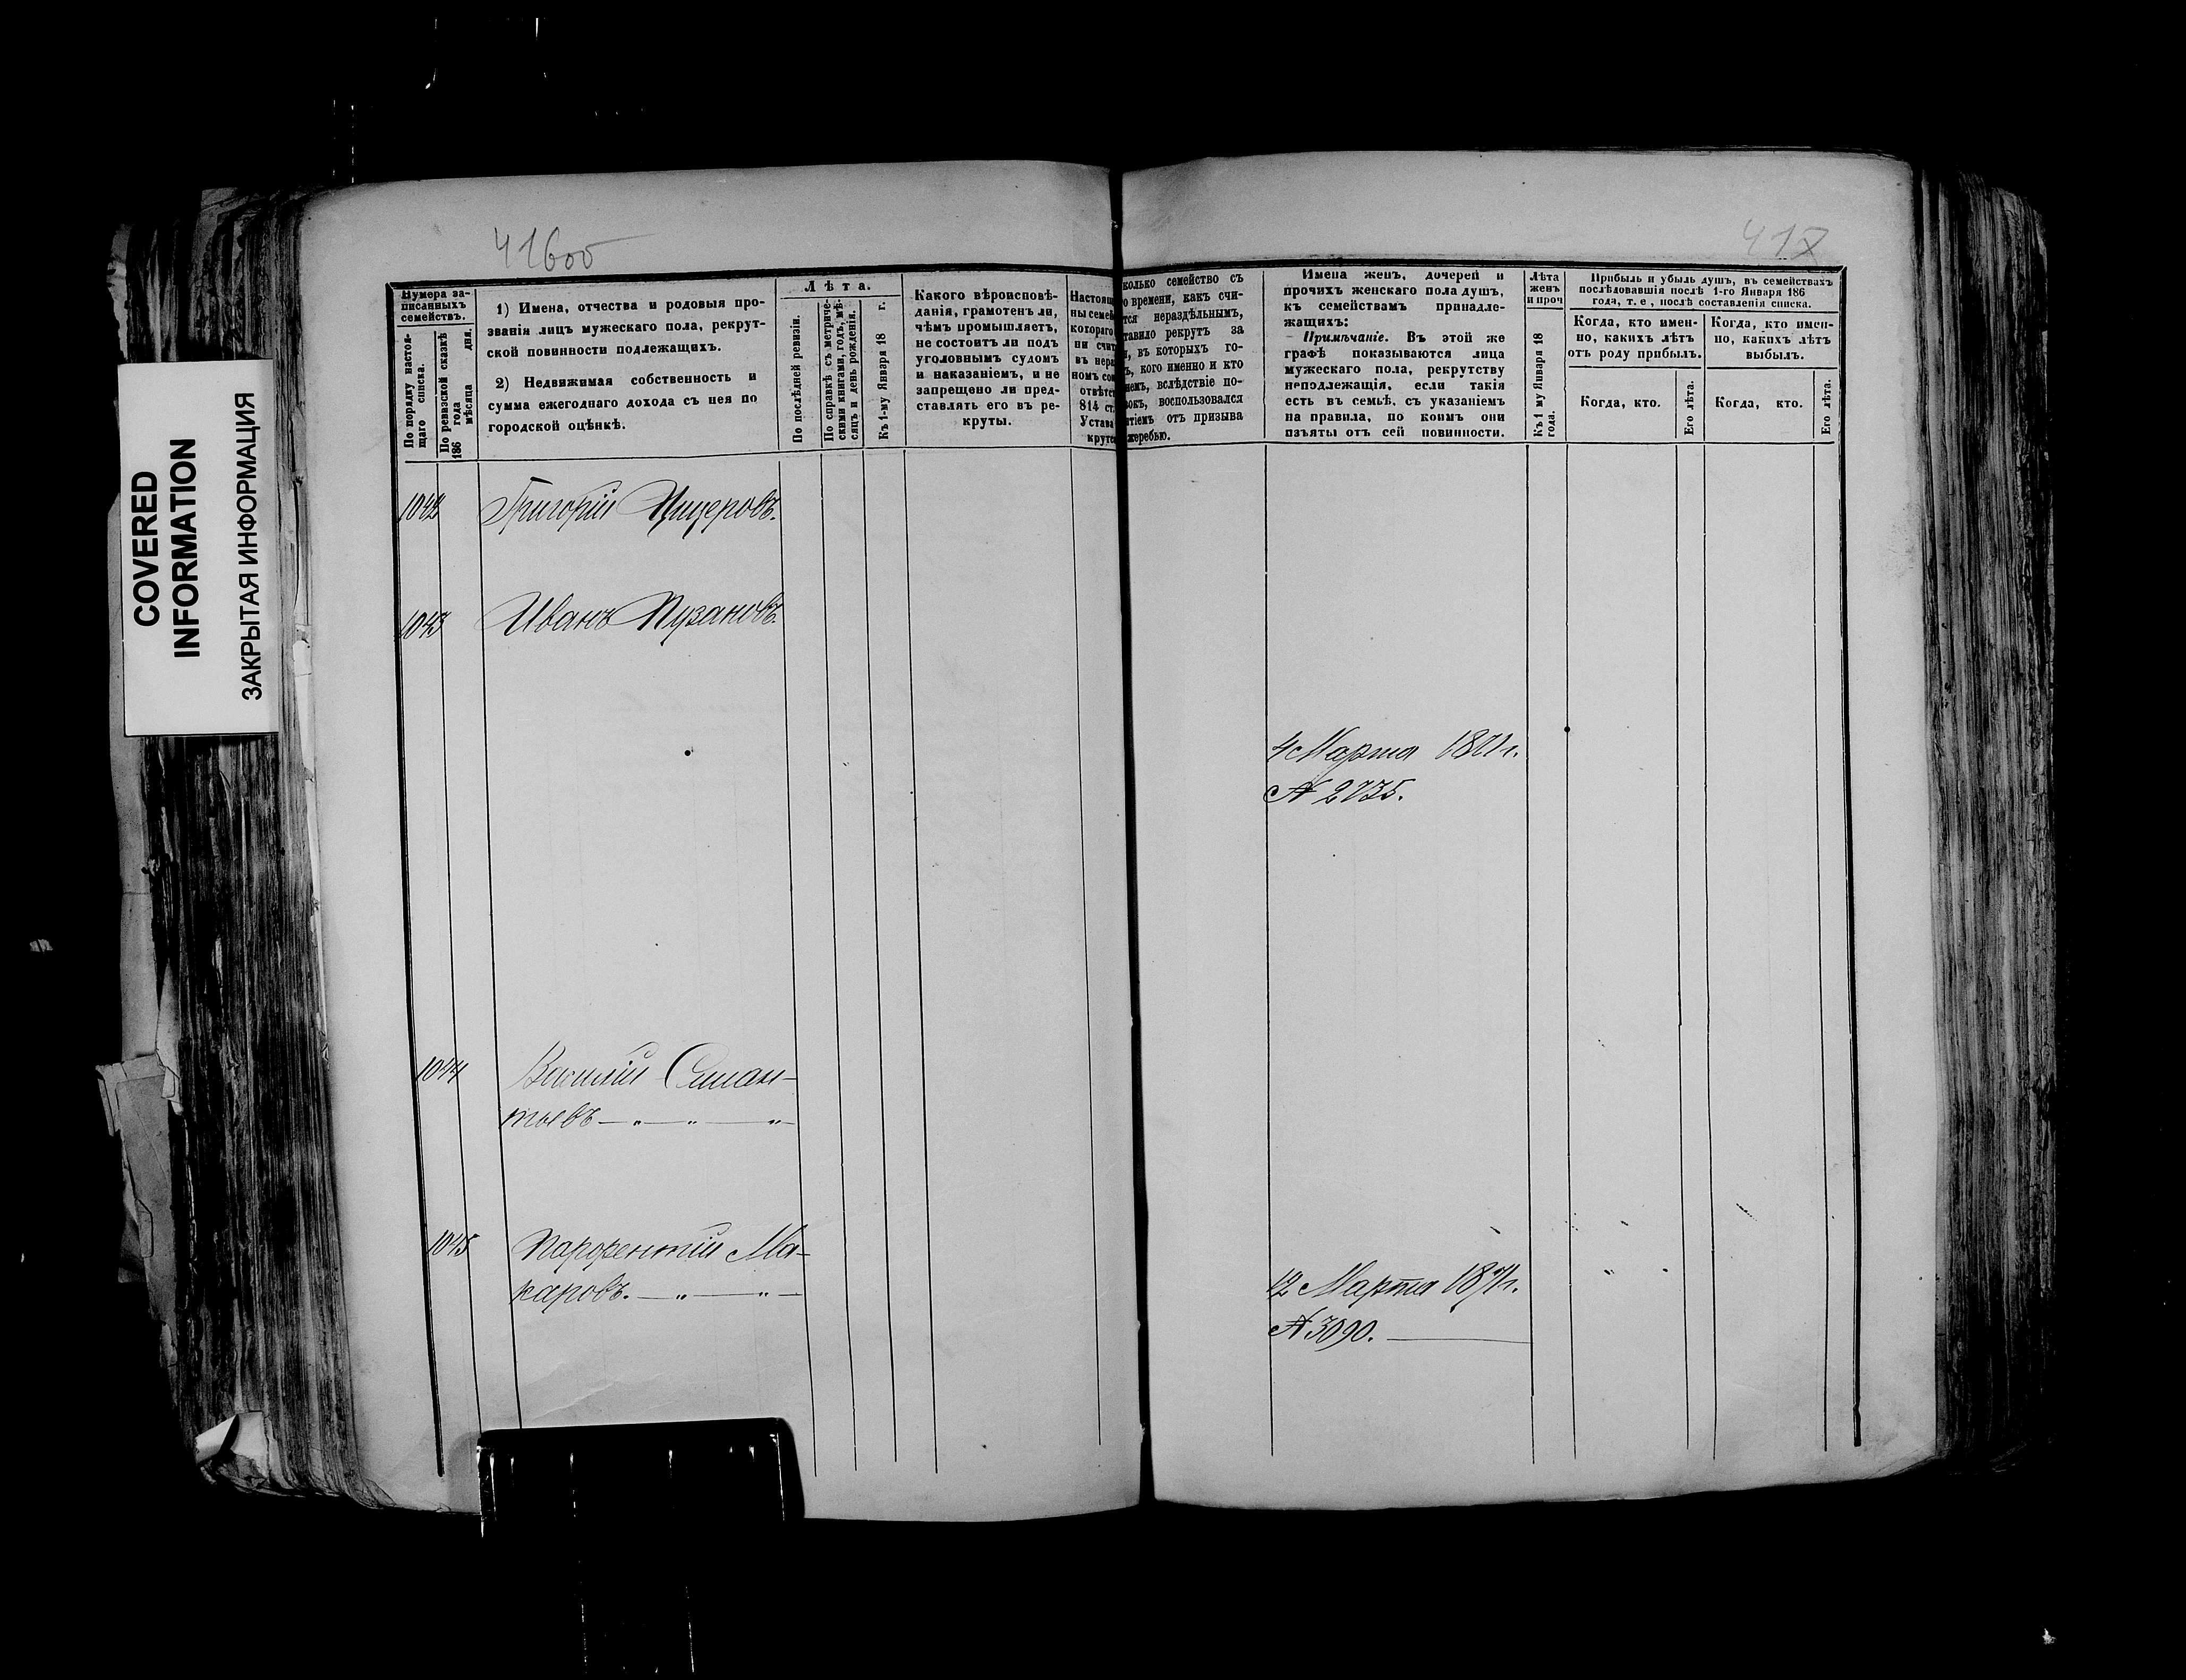 COVERED
INFORMATION
ЗАКРЫТАЯ ИНФОРМАЦИЯ
416об
417
Нумера за-
писанныхъ
семействъ.
По порядку настоя-
щаго списка.
По ревизской сказкѣ
186 года
мѣсяца дня.
1) Имена, отчества и родовыя про-
званія лицъ мужескаго пола, рекрут-
ской повинности подлежащихъ.
2) Недвижимая собственность и
сумма ежегоднаго дохода съ нея по
городской оцѣнкѣ.
Лѣта.
По послѣдней ревизіи.
По справкѣ съ метриче-
скими книгами, годъ, мѣ-
сяцъ и день рожденія.
Къ 1-му Января 18 г.
Какого вѣроисповѣ-
данія, грамотенъ ли,
чѣмъ промышляетъ,
не состоитъ ли подъ
уголовнымъ судомъ
и наказаніемъ, и не
запрещено ли пред-
ставлять его въ ре-
круты.
Настоящ
ны семей
котораго
ни счит
въ нера
номъ со
отвѣтс
814 ст.
Устава
крутс
колько семейство съ
о времени, какъ счи-
тся нераздѣльнымъ,
тавило рекрутъ за
и, въ которыхъ го-
ъ, кого именно и кто
немъ, вслѣдствіе по-
вокъ, воспользовался
тіемъ отъ призыва
жеребью.
Имена женъ, дочерей и
прочихъ женскаго пола душъ,
къ семействамъ принадле-
жащихъ:
Примѣчаніе. Въ этой же
графѣ показываются лица
мужескаго пола, рекрутству
неподлежащія, если такія
есть въ семьѣ, съ указаніемъ
на правила, по коимъ они
изъяты отъ сей повинности.
Лѣта
женъ
и проч
Къ 1 му Января 18
года.
Прибыль и убыль душъ, въ семействахъ
послѣдовавшія послѣ 1-го Января 186
года, т. е, послѣ составленія списка.
Когда, кто имен-
но, какихъ лѣтъ
отъ роду прибылъ.
Когда, кто.
Его лѣта.
Когда, кто имен-
но, какихъ лѣтъ
выбылъ.
Когда, кто.
Его лѣта.
1042 Григорій Цыцеровъ.
1043 Иванъ Пузановъ.
4 Марта 1871 г.
№ 2735.
1044 Василій Силан-
тьевъ — „ — „ — „ —
1045 Парфентій Ма-
каровъ. — „ — „ —
12 Марта 1871 г.
№ 3090.